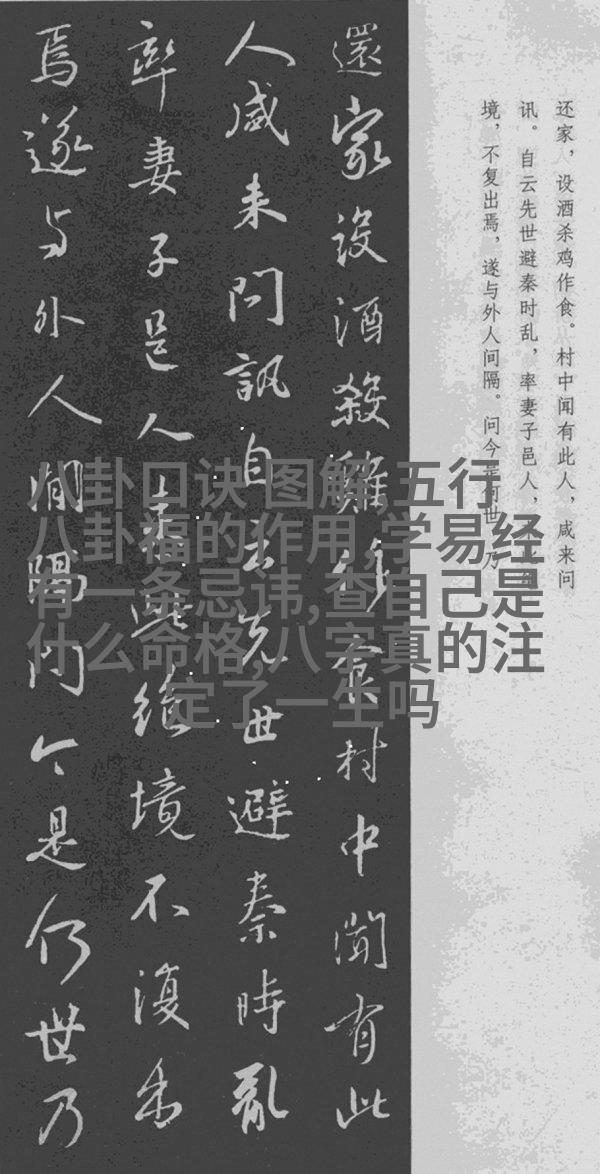 还家，设酒杀鸡作食。村中闻有此人，咸来问
讯。自云先世避秦时乱，率妻子邑人，来此绝
境，不复出焉，遂与外人间隔。问今是何世，乃
還家設酒殺雞作食村中聞有此
人咸来問訊自云先世避秦時亂
率妻子邑人来此絶境不復出
焉遂与外人間隔问今是何世乃
八卦口诀 图解,五行
八卦福的作用,学易经
有一条忌讳,查自己是
什么命格,八字真的注
定了一生吗